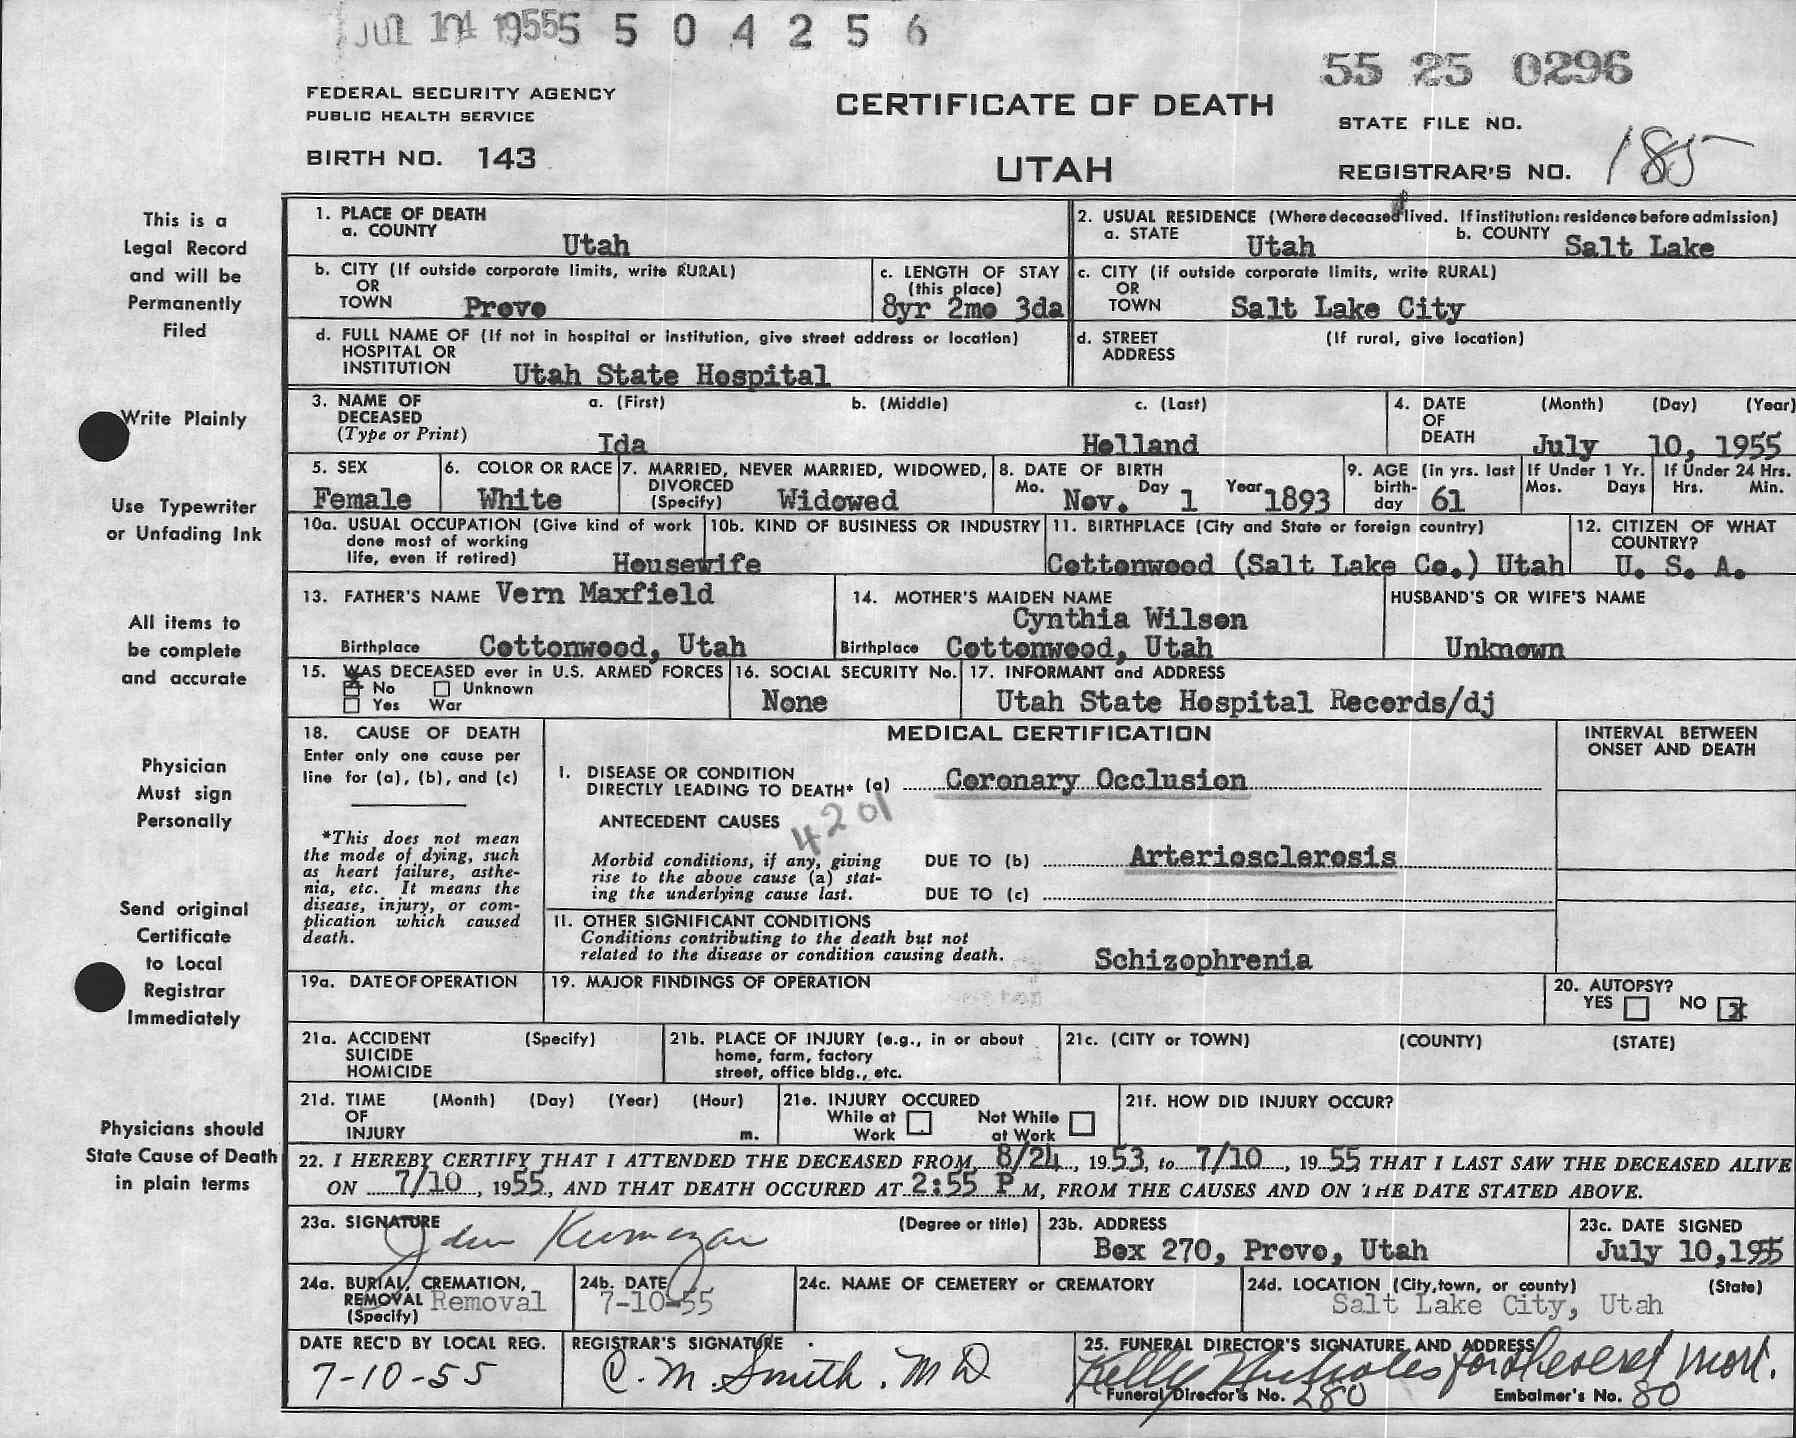 JUL 14 1955 5 5 0 4 2 5 6
55 25 0296
FEDERAL SECURITY AGENCY
PUBLIC HEALTH SERVICE
BIRTH NO. 143
CERTIFICATE OF DEATH
UTAH
STATE FILE NO.
REGISTRAR'S NO. 185
This is a
Legal Record
and will be
Permanently
Filed
Write Plainly
Use Typewriter
or Unfading Ink
All items to
be complete
and accurate
Physician
Must sign
Personally
Send original
Certificate
to Local
Registrar
Immediately
Physicians should
State Cause of Death
in plain terms
1. PLACE OF DEATH
a. COUNTY
Utah
2. USUAL RESIDENCE (Where deceased lived. If institution: residence before admission)
a. STATE Utah b. COUNTY Salt Lake
b. CITY (If outside corporate limits, write RURAL)
OR
TOWN Provo
c. LENGTH OF STAY
(this place)
8yr 2mo 3da
c. CITY (if outside corporate limits, write RURAL)
OR
TOWN Salt Lake City
d. FULL NAME OF (If not in hospital or institution, give street address or location)
HOSPITAL OR
INSTITUTION Utah State Hospital
d. STREET (If rural, give location)
ADDRESS
3. NAME OF a. (First) b. (Middle) c. (Last)
DECEASED
(Type or Print) Ida Holland
4. DATE (Month) (Day) (Year)
OF
DEATH July 10, 1955
5. SEX
Female
6. COLOR OR RACE
White
7. MARRIED, NEVER MARRIED, WIDOWED,
DIVORCED
(Specify) Widowed
8. DATE OF BIRTH
Mo. Nov. Day 1 Year 1893
9. AGE (in yrs. last
birth-
day 61
If Under 1 Yr.
Mos. Days
If Under 24 Hrs.
Hrs. Min.
10a. USUAL OCCUPATION (Give kind of work
done most of working
life, even if retired) Housewife
10b. KIND OF BUSINESS OR INDUSTRY
11. BIRTHPLACE (City and State or foreign country)
Cottonwood (Salt Lake Co.) Utah
12. CITIZEN OF WHAT
COUNTRY?
U. S. A.
13. FATHER'S NAME Vern Maxfield
Birthplace Cottonwood, Utah
14. MOTHER'S MAIDEN NAME
Cynthia Wilson
Birthplace Cottonwood, Utah
HUSBAND'S OR WIFE'S NAME
Unknown
15. WAS DECEASED ever in U.S. ARMED FORCES
x No Unknown
Yes War
16. SOCIAL SECURITY No.
None
17. INFORMANT and ADDRESS
Utah State Hospital Records/dj
18. CAUSE OF DEATH
Enter only one cause per
line for (a), (b), and (c)
*This does not mean
the mode of dying, such
as heart failure, asthe-
nia, etc. It means the
disease, injury, or com-
plication which caused
death.
MEDICAL CERTIFICATION
INTERVAL BETWEEN
ONSET AND DEATH
I. DISEASE OR CONDITION
DIRECTLY LEADING TO DEATH* (a) Coronary Occlusion
ANTECEDENT CAUSES 4201
Morbid conditions, if any, giving
rise to the above cause (a) stat-
ing the underlying cause last.
DUE TO (b) Arteriosclerosis
DUE TO (c)
II. OTHER SIGNIFICANT CONDITIONS
Conditions contributing to the death but not
related to the disease or condition causing death. Schizophrenia
19a. DATE OF OPERATION
19. MAJOR FINDINGS OF OPERATION
20. AUTOPSY?
YES NO x
21a. ACCIDENT (Specify)
SUICIDE
HOMICIDE
21b. PLACE OF INJURY (e.g., in or about
home, farm, factory
street, office bldg., etc.
21c. (CITY or TOWN) (COUNTY) (STATE)
21d. TIME (Month) (Day) (Year) (Hour)
OF
INJURY m.
21e. INJURY OCCURED
While at Not While
Work at Work
21f. HOW DID INJURY OCCUR?
22. I HEREBY CERTIFY THAT I ATTENDED THE DECEASED FROM 8/24, 1953, to 7/10, 1955 THAT I LAST SAW THE DECEASED ALIVE
ON 7/10, 1955, AND THAT DEATH OCCURED AT 2:55 P M, FROM THE CAUSES AND ON THE DATE STATED ABOVE.
23a. SIGNATURE (Degree or title)
23b. ADDRESS
Box 270, Provo, Utah
23c. DATE SIGNED
July 10,1955
24a. BURIAL, CREMATION,
REMOVAL Removal
(Specify)
24b. DATE
7-10-55
24c. NAME OF CEMETERY or CREMATORY
24d. LOCATION (City, town, or county) (State)
Salt Lake City, Utah
DATE REC'D BY LOCAL REG.
7-10-55
REGISTRAR'S SIGNATURE
C. M. Smith. M D
25. FUNERAL DIRECTOR'S SIGNATURE AND ADDRESS
Kelly for mort.
Funeral Director's No. 280 Embalmer's No. 80